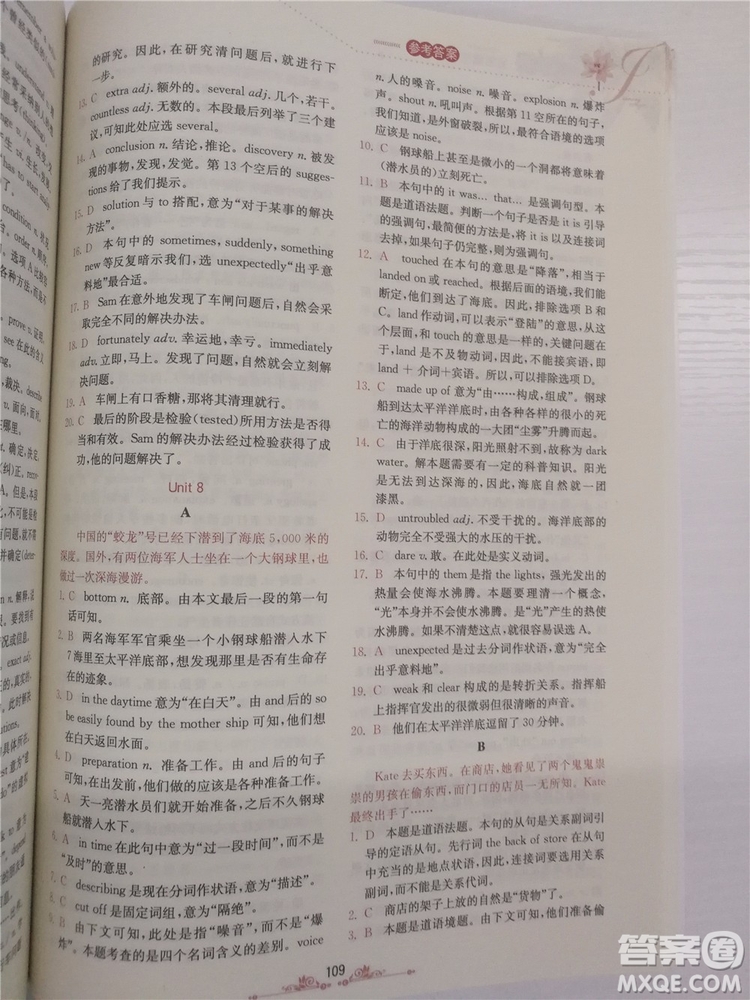 参考答案
的研究。因此，在研究清问题后，就可以进行下
一步。
13. C extra adj. 额外的。several adj. 几个，若干。
countless adj. 无数的。本段最后给出了三个建
议，可知此处应选 several。
14. A conclusion n. 结论，推论。discovery n. 被
发现的事物，发现，发觉。第 13 个空后的 sugges-
tions 给了我们提示。
15. D solution 与 to 搭配，意为“对于某事的解决
方法”。
16. D 本句中的 sometimes, suddenly, something
new 等反复暗示我们，选 unexpectedly“出乎意
料地”最合适。
17. B Sam 在意外地发现了车闸问题后，自然会采
取完全不同的解决办法。
18. D fortunately adv. 幸运地，幸亏。immediately
adv. 立即，马上。发现了问题，自然就会立刻解
决问题。
19. A 车闸上有口香糖，那将其清理就行。
20. C 最后的阶段是检验(tested)所用方法是否得
当和有效。Sam 的解决过程经过了检验获得了成
功，他的问题解决了。
Unit 8
A
中国的“蛟龙”号已经下潜到了海底 5,000 米的
深度。国外，有两位海军人士坐在一个大钢球里，也
做过一次深海漫游。
1. C bottom n. 底部。由本文最后一段的第一句
话可知。
2. B 两名海军军官乘坐一个小钢球船潜入水下
7 海里至太平洋底部，想发现那里是否有生命存
在的迹象。
3. D in the daytime 意为“在白天”。由 and 后的 so
be easily found by the mother ship 可知，他们想
在白天返回水面。
4. D preparation n. 准备工作。由 and 后的句子
可知，在出发前，他们做的应该是各种准备工作。
5. A 天一亮潜水员们就开始准备工作，以让小钢球
船就潜入水下。
6. A in time 在此句中意为“过一段时间”，而不是
“及时”的意思。
7. C describing 是现在分词作状语，意为“描述”。
8. C cut off 是固定词组，意为“隔绝”。
9. B 由下文可知，此处是指“噪音”，而不是“爆
炸”。本题考查的是四个名词含义的差别。voice
n. 人的嗓音。noise n. 噪音。explosion n. 爆炸
声。shout n. 吼叫声。根据第 11 空所在的句子，
我们知道，是外窗破裂。所以，最符合语境的选项
应该是 noise。
10. C 钢球船上甚至是微小的一个洞都将意味着
(潜水员的)立刻死亡。
11. B 本句中的 it was... that... 是强调句型。本
题是语法题。判断一个句子是否是 it is 引导
的强调句，最简便的方法是，将 it is 以及连接词
去掉，如果句子仍完整，则为强调句。
12. A touched 在本句的意思是“降落”，相当于
landed on 或 reached。根据前后句子的意思判
断，他们到达了海底。因此，排除选项 B 和
C。land 作动词，可以表示“登陆”的意思，从这
个层面，和 touch 的意思是一样的。但关键是
land 是不及物动词，因此，不能接宾语，即
land + 介词＋宾语。所以，可以排除选项 D。
13. C made up of 意为“由……构成，组成”。钢球
船到达太平洋洋底后，由各种各样的很小的死
亡的海洋动物构成的一大团“尘雾”升腾而起。
14. C 由于洋底很深，阳光照射不到，故成为 dark
water。解本题需要一定的科普知识。阳光
是无法达到深海的，因此，海底自然就一团
漆黑。
15. D untroubled adj. 不受干扰的。海洋底部的
动物完全不受强大的水压的干扰。
16. C dare v. 敢。在此处是实义动词。
17. B 本句中的 them 是指 the lights，强光发出的
热量会使海水沸腾。这里要清理一个概念，
“光”本身并不会使水沸腾。是“光”产生的热使
水沸腾。如果不仔细理解，就很容易误选 A。
18. A unexpected 是过去分词作状语，意为“完全
出乎意料地”。
19. C weak 和 clear 构成的是转折关系。指挥船
上指挥官发出的很微弱但很清晰的声音。
20. B 他们在太平洋洋底逗留了 30 分钟。
B
Kate 去买东西。在商店，她看见了两个鬼鬼祟
祟的男孩在偷东西，而门口的店员一无所知。Kate
最终出手了……
1. D 本题是语法题。本句的从句是关系副词引
导的定语从句。先行词 the back of store 在从句
中充当的是地点状语，因此，连接词要选用关系
副词，而不能用关系代词。
2. C 商店的架子上放的自然是“货物”了。
3. B 本题是语境题。由下文可知，他们准备偷
109
答案圈
MXQE.COM